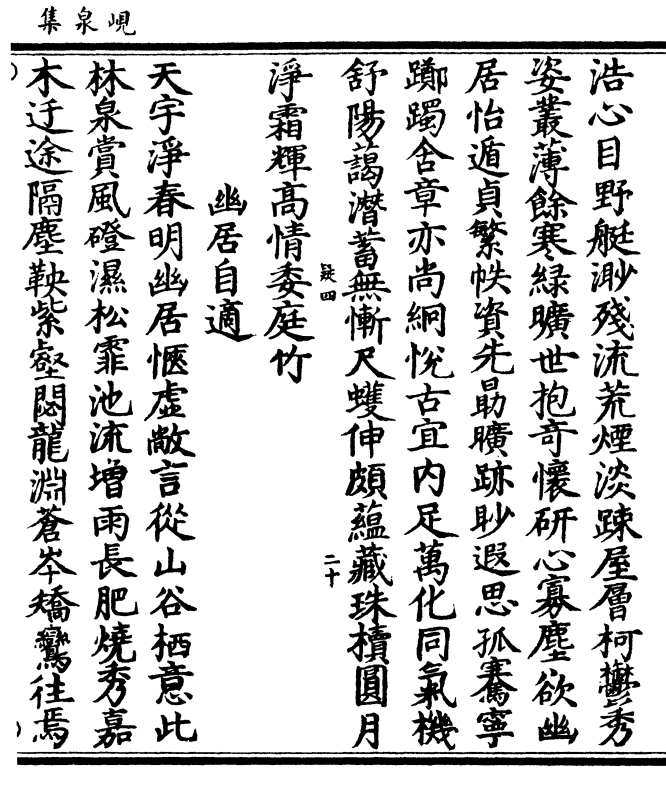 峴泉集
浩心目野艇渺殘流荒煙淡踈屋層柯鬱秀
姿叢薄餘寒緑曠世抱奇懷研心寡塵欲幽
居怡遁貞繁帙資先勗曠跡眇遐思孤騫寧
躑躅含章亦尚絅恱古宜内足萬化同氣機
舒陽藹潜蓄無慚尺蠖伸頗蘊藏珠櫝圓月
疑四
二十
淨霜輝高情委庭竹
幽居自適
天宇淨春明幽居愜虛敞言從山谷栖意此
林泉賞風磴濕松霏池流增雨長肥燒秀嘉
木迂途隔塵鞅紫壑悶龍淵蒼岑矯鸞往焉